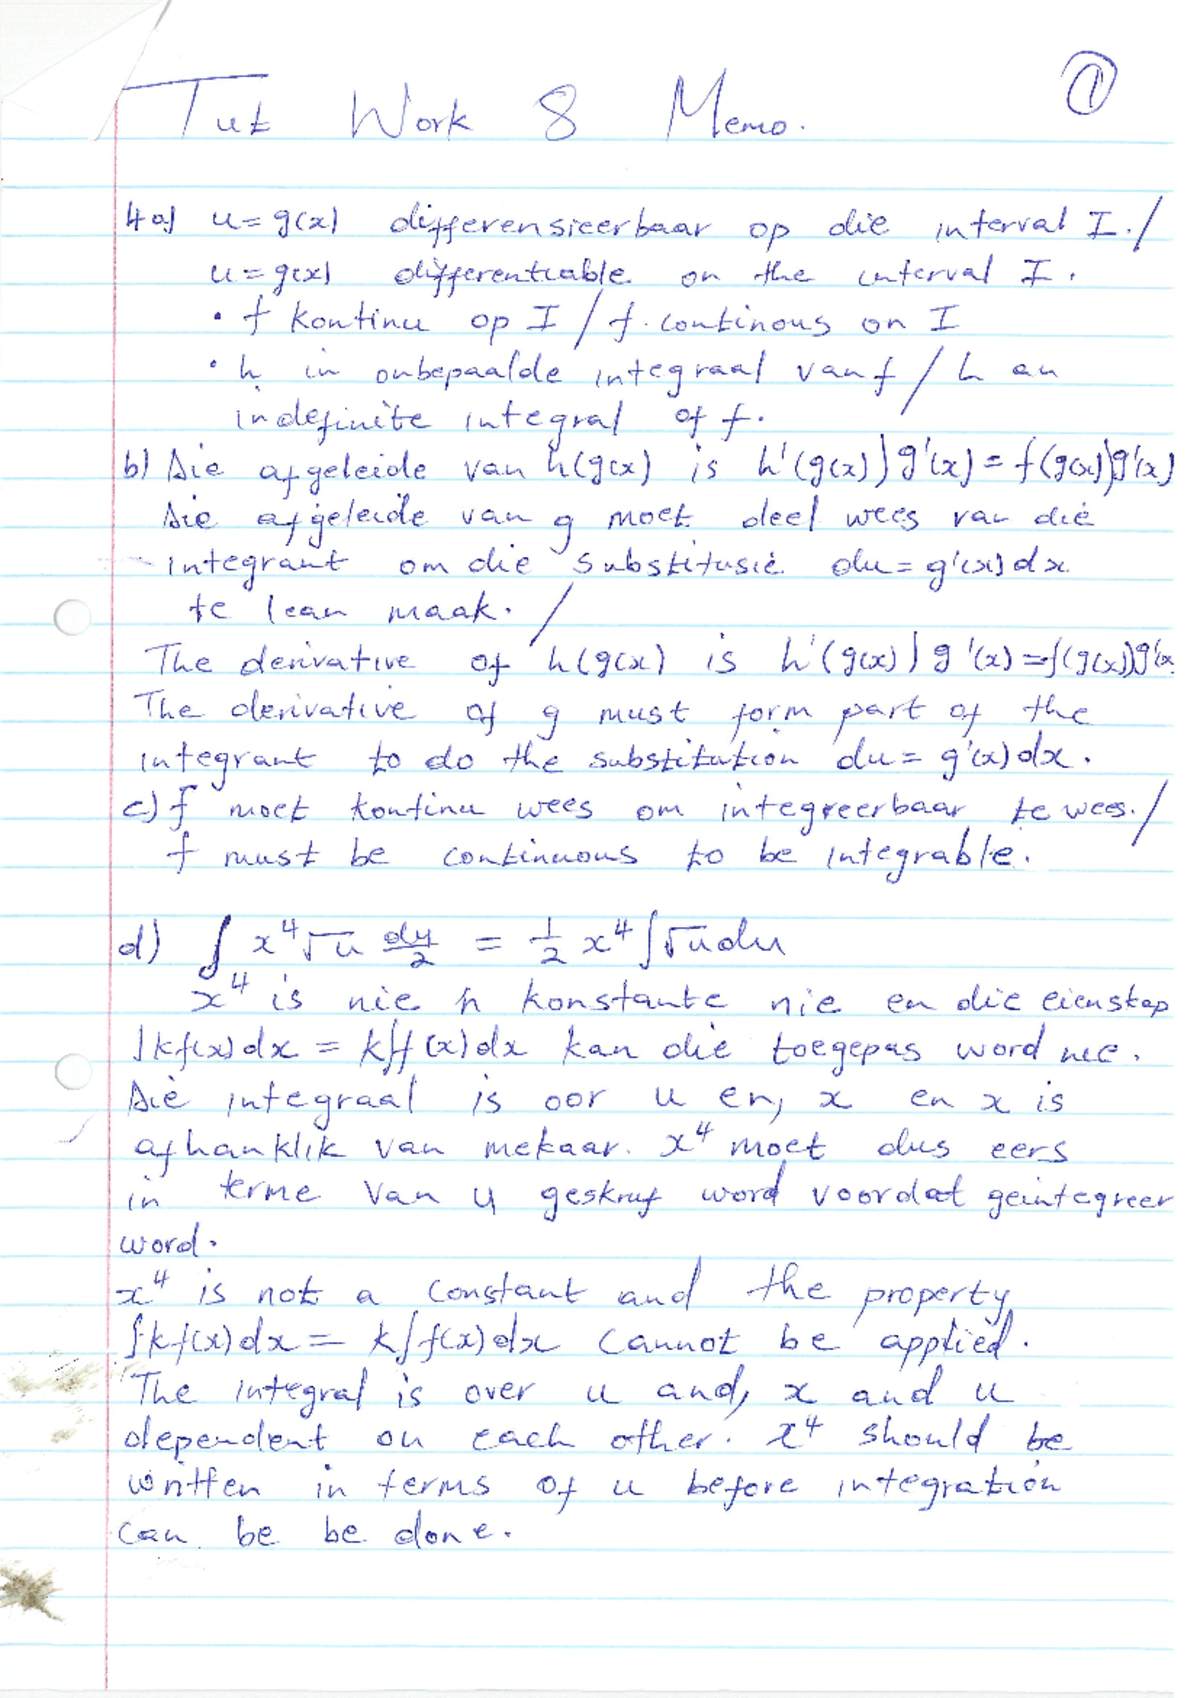 ①
Tut Work 8 Memo.
4a) u = g(x) differensieerbaar op die interval I. /
u = g(x) differentiable on the interval I.
• f kontinu op I / f continous on I
• h 'n onbepaalde integraal van f / h an
indefinite integral of f.
b) Die afgeleide van h(g(x) is h'(g(x)) g'(x) = f(g(x))g'(x)
Die afgeleide van g moet deel wees van die
integrant om die substitusie du = g'(x) dx
te kan maak. /
The derivative of h(g(x) is h'(g(x)) g'(x) = f(g(x))g'(x
The derivative of g must form part of the
integrant to do the substitution du = g'(x) dx.
c) f moet kontinu wees om integreerbaar te wees. /
f must be continuous to be integrable.
d) ∫ x⁴ √u du/2 = 1/2 x⁴ ∫√u du
x⁴ is nie 'n konstante nie en die eienskap
∫kf(x) dx = k∫f(x) dx kan die toegepas word nie.
Die integraal is oor u en, x en x is
afhanklik van mekaar. x⁴ moet dus eers
in terme van u geskryf word voordat geintegreer
word.
x⁴ is not a constant and the property
∫kf(x) dx = k∫f(x) dx cannot be applied.
The integral is over u and, x and u
dependent on each other. x⁴ should be
written in terms of u before integration
can be be done.